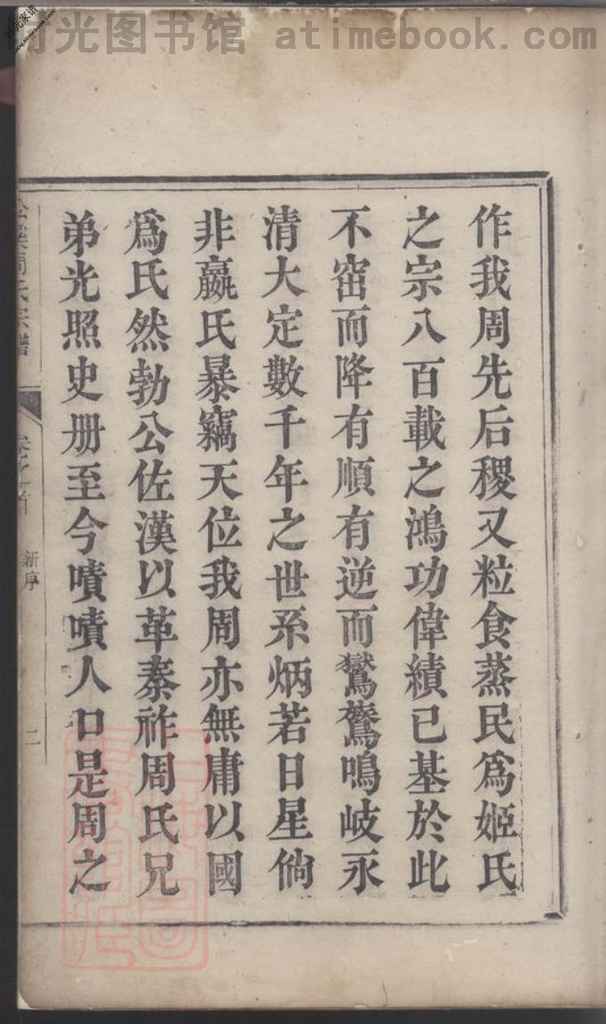 时光图书馆 atimebook.com
作我周先后稷又粒食蒸民爲姬氏
之宗八百載之鴻功偉績已基於此
不窋而降有順有逆而鸑鷟鳴岐永
清大定數千年之世系炳若日星倘
非嬴氏暴竊天位我周亦無庸以國
爲氏然勃公佐漢以革秦祚周氏兄
弟光照史册至今嘖嘖人口是周之
周氏宗譜
卷之首 新序
二